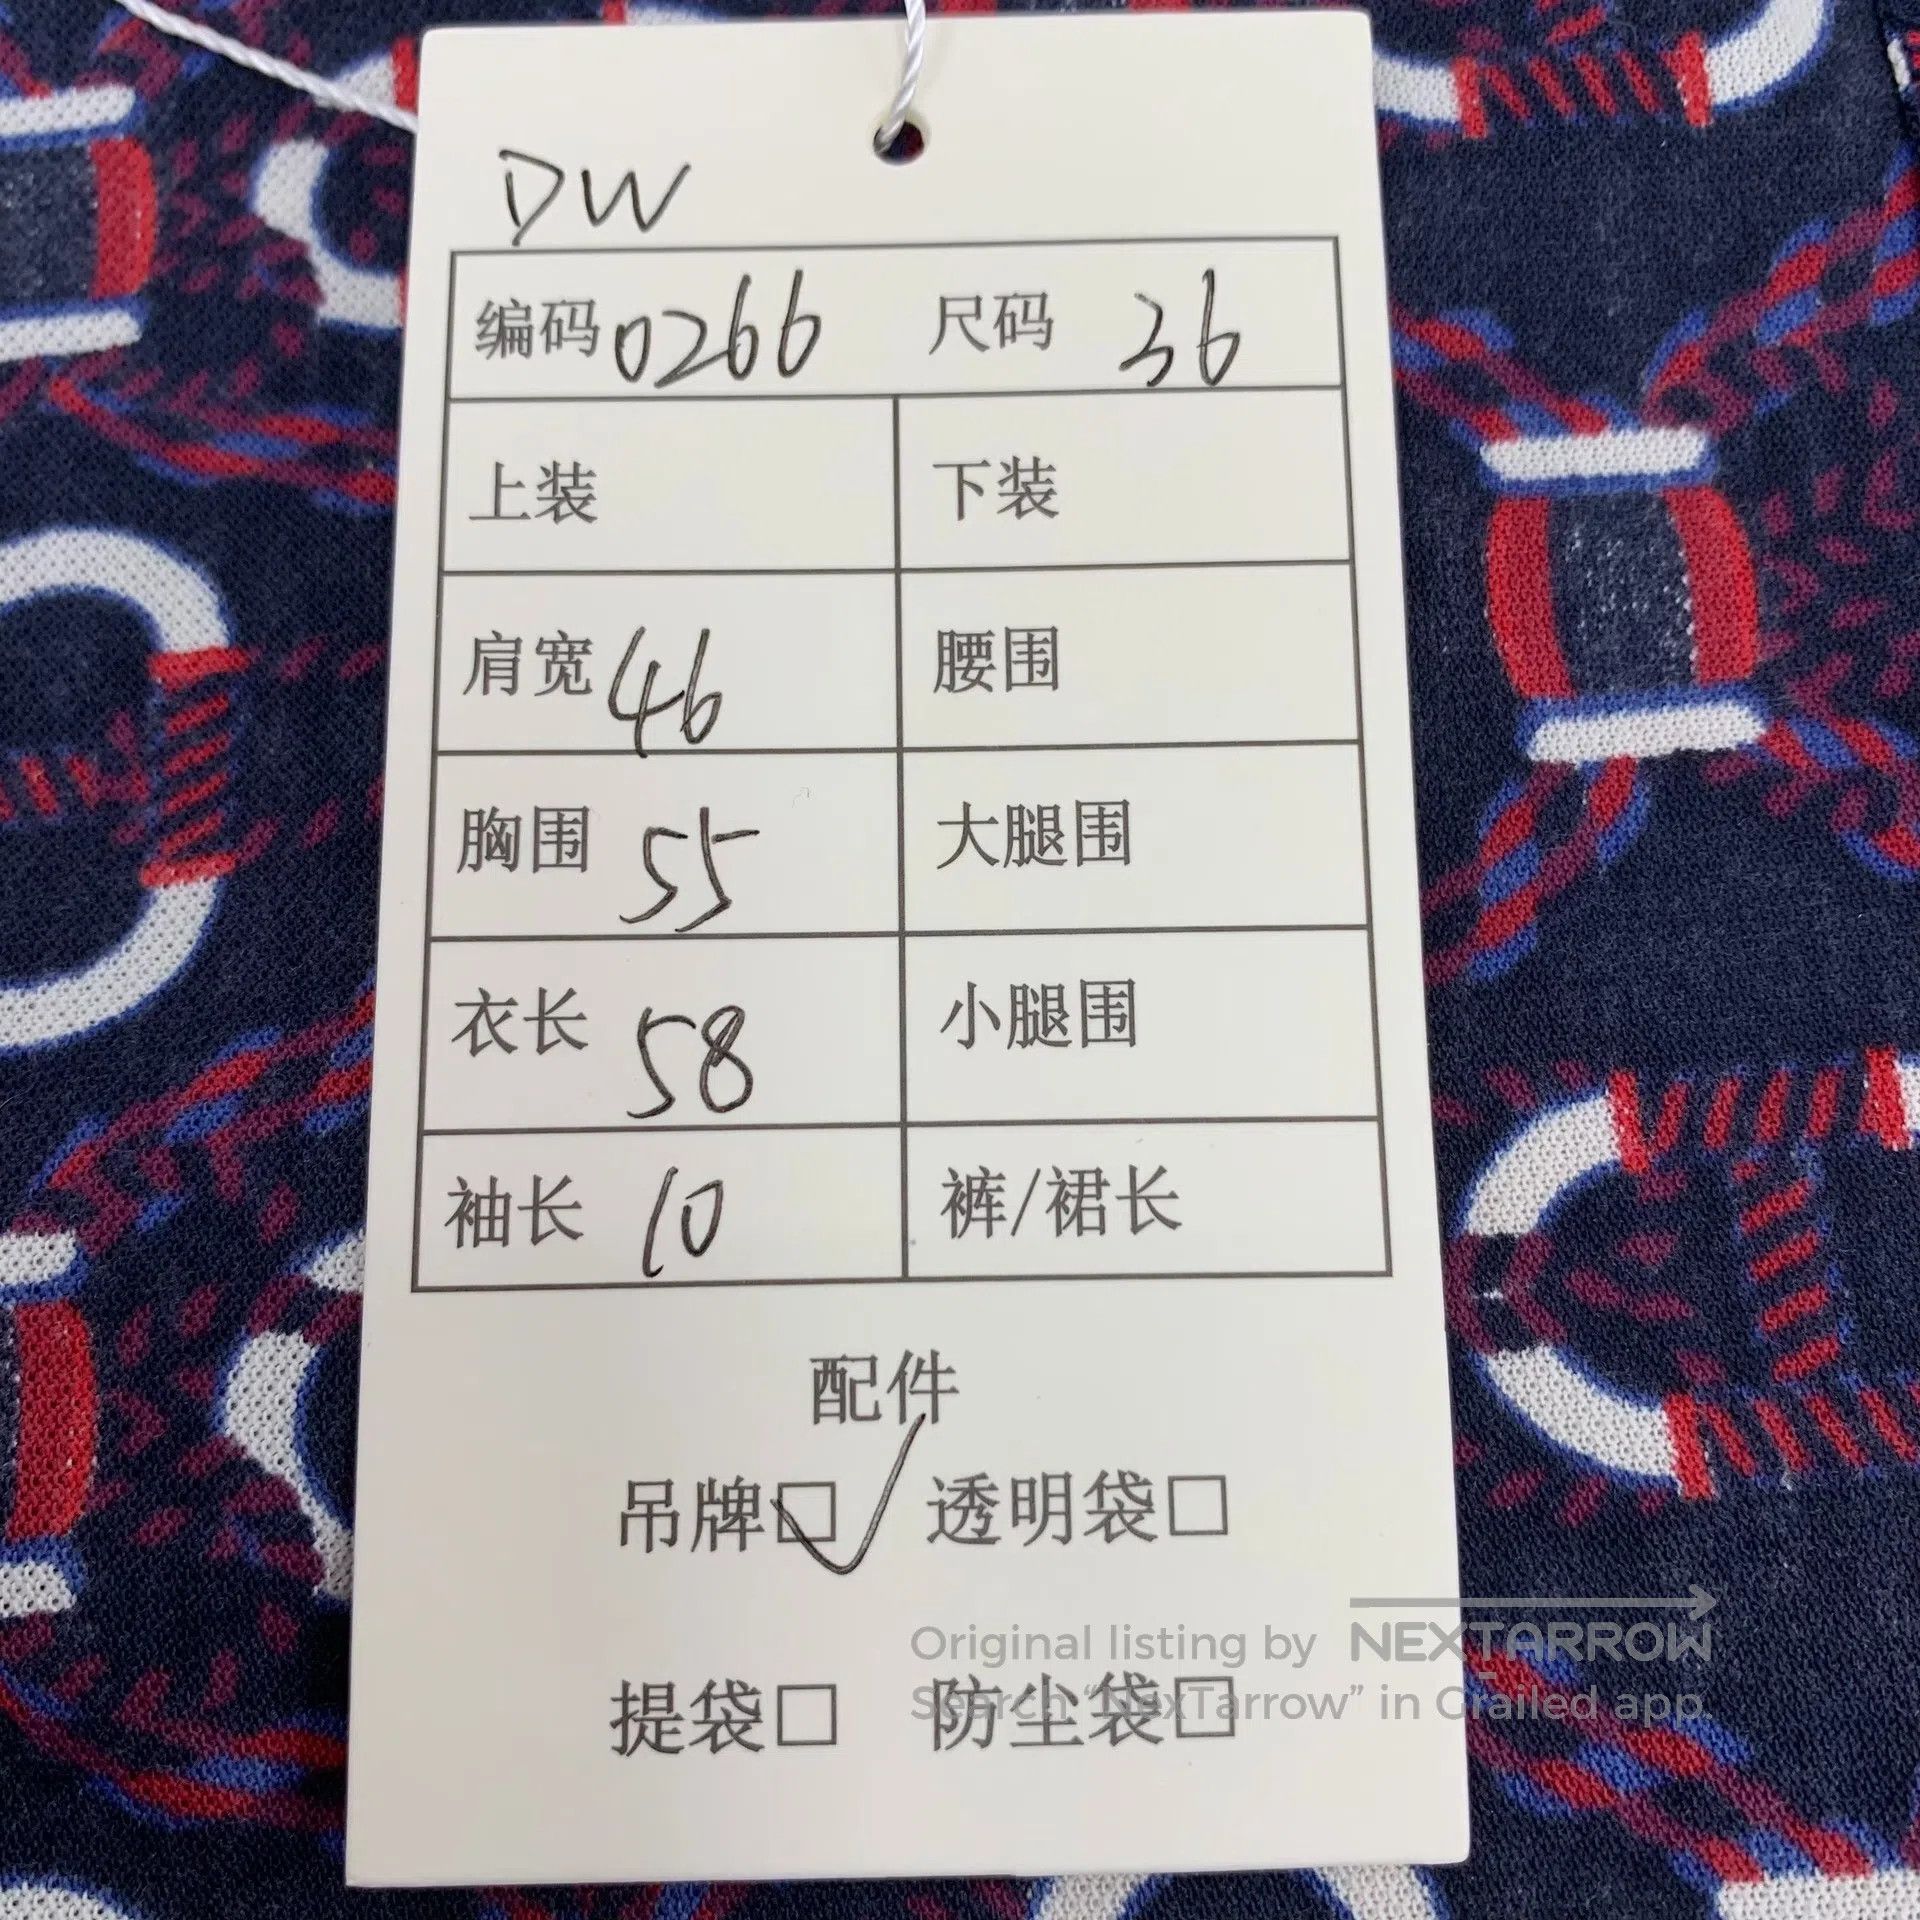 DW
编码 0266 尺码 36
上装 下装
肩宽 46 腰围
胸围 55 大腿围
衣长 58 小腿围
袖长 10 裤/裙长
配件
吊牌□ 透明袋□
Original listing by NEXTARROW
Search “NexTarrow” in Grailed app.
提袋□ 防尘袋□